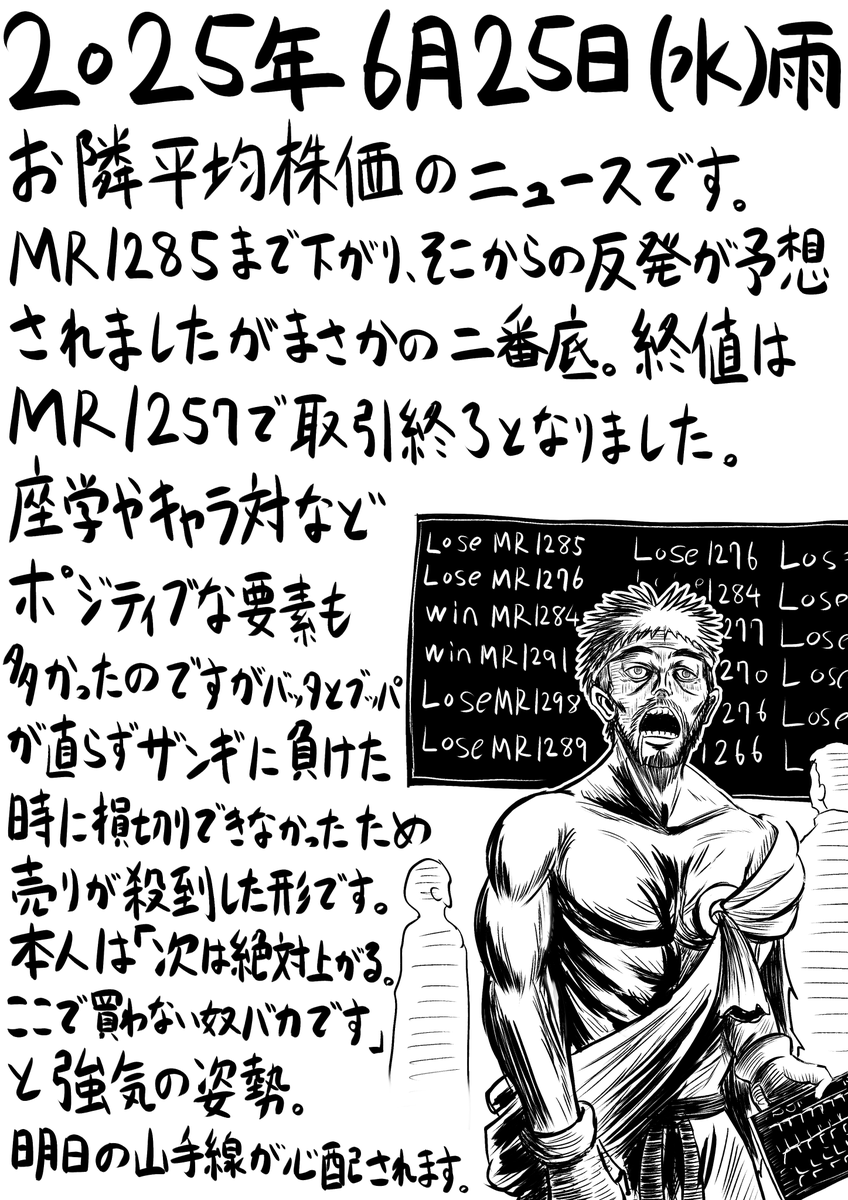 2025年6月25日(水)雨
お隣平均株価のニュースです。
MR1285まで下がり、そこからの反発が予想
されましたがまさかの二番底。終値は
MR1257で取引終了となりました。
座学やキャラ対など
ポジティブな要素も
多かったのですがバッタとブッパ
が直らずザンギに負けた
時に損切りできなかったため
売りが殺到した形です。
本人は「次は絶対上がる。
ここで買わない奴バカです」
と強気の姿勢。
明日の山手線が心配されます。
Lose MR1285
Lose MR1276
win MR1284
win MR1291
Lose MR1298
Lose MR1289
Lose 1276
1284
277
270
276
1266
Los
Lose
Lose
Lose
Lose
L